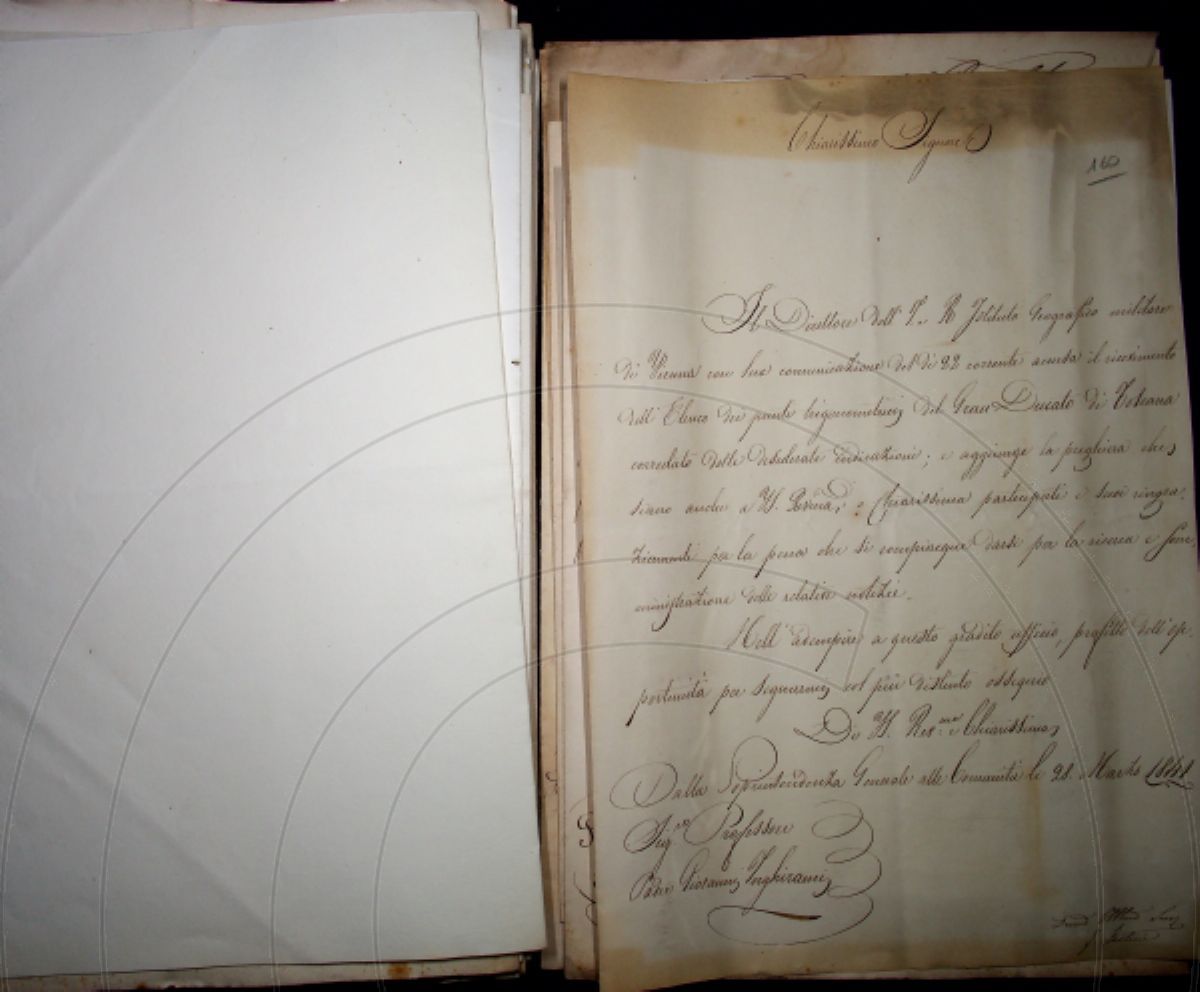 Chiarissimo Signore
160
Il Direttore dell' I. R. Istituto Geografico militare
di Vienna con sua comunicazione del dì 22 corrente accusa il ricevimento
dell' Elenco dei punti trigonometrici del Gran Ducato di Toscana
corredato delle desiderate indicazioni; e aggiunge la preghiera che
siano anche a V. e Chiarissima partecipati i suoi ringra-
ziamenti per la pena che si compiacque darsi per la ricerca e som-
ministrazione delle relative notizie.
Nell' adempire a questo gradito ufficio, profitto dell' op-
portunità per segnarmi col più distinto ossequio
Di V. Rev.ma e Chiarissima
Dalla Soprintendenza Generale alle Comunità li 28. Marzo 1841
Sig.re Professore
Padre Giovanni Inghirami